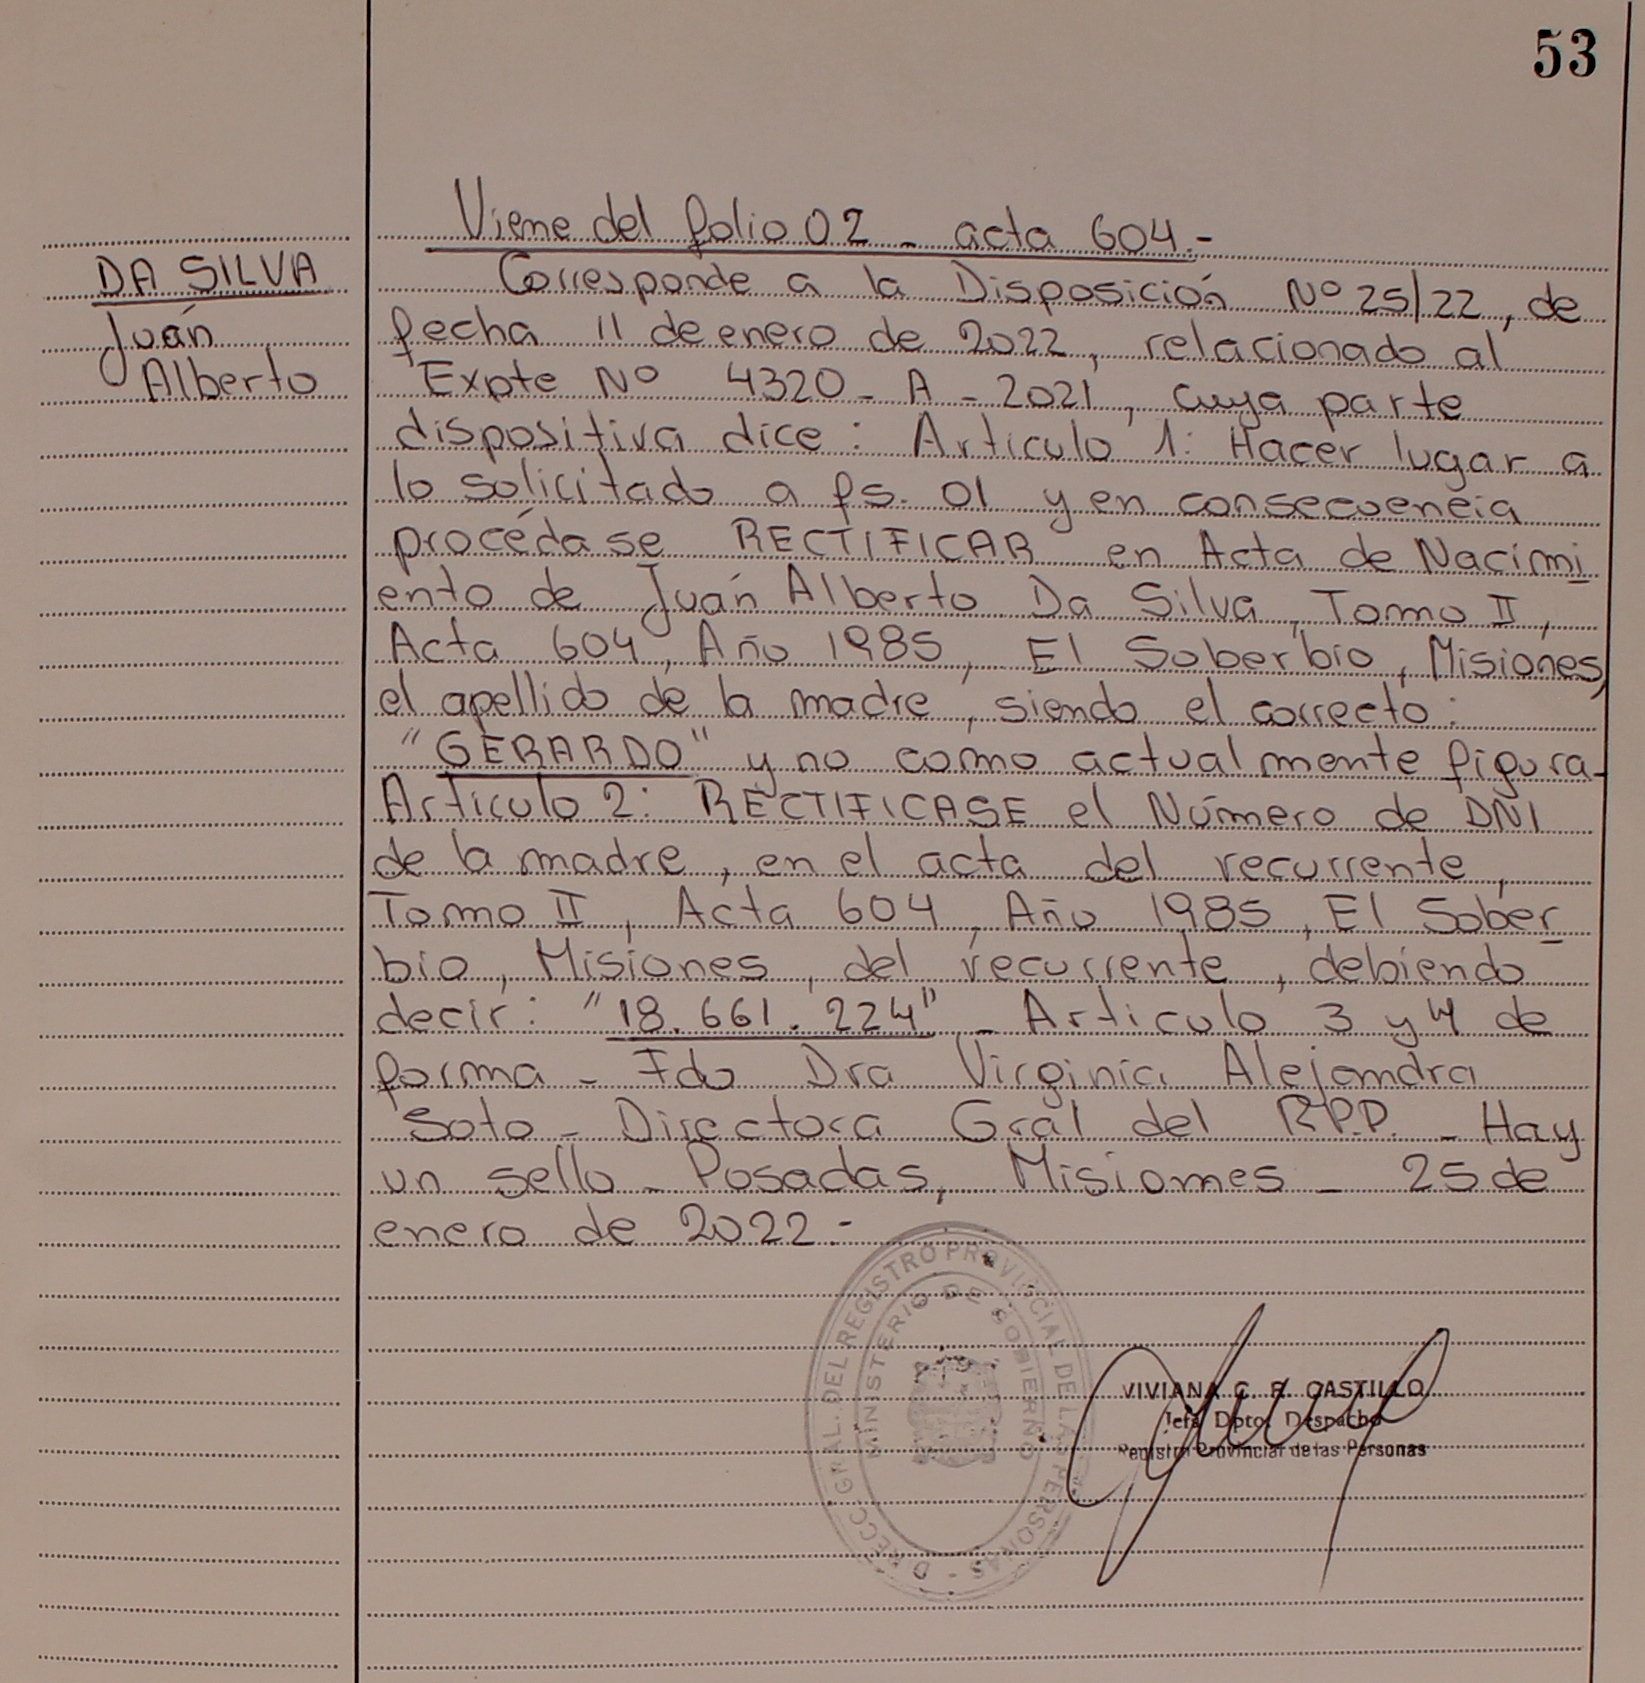 53
Viene del folio 02 - acta 604.-
DA SILVA
Juan
Alberto
Corresponde a la Disposición Nº 25/22, de
fecha 11 de enero de 2022, relacionado al
Expte Nº 4320 - A - 2021, cuya parte
dispositiva dice: Articulo 1: Hacer lugar a
lo solicitado a fs. 01 y en consecuencia
procédase RECTIFICAR en Acta de Nacimi
ento de Juan Alberto Da Silva, Tomo II,
Acta 604, Año 1985, El Soberbio, Misiones,
el apellido de la madre, siendo el correcto:
"GERARDO" y no como actualmente figura-
Articulo 2: RECTIFICASE el Número de DNI
de la madre, en el acta del recurrente,
Tomo II, Acta 604, Año 1985, El Sober
bio, Misiones, del recurrente, debiendo
decir: "18.661.224" - Articulo 3 y 4 de
forma - Fdo Dra Virginia Alejandra
Soto - Directora Gral del R.P.P. - Hay
un sello - Posadas, Misiones - 25 de
enero de 2022.-
DIRECC. GRAL. DEL REGISTRO PROVINCIAL DE LAS PERSONAS -
MINISTERIO DE GOBIERNO
VIVIANA C. R. CASTILLO
Jefa Dpto. Despacho
Registro Provincial de las Personas